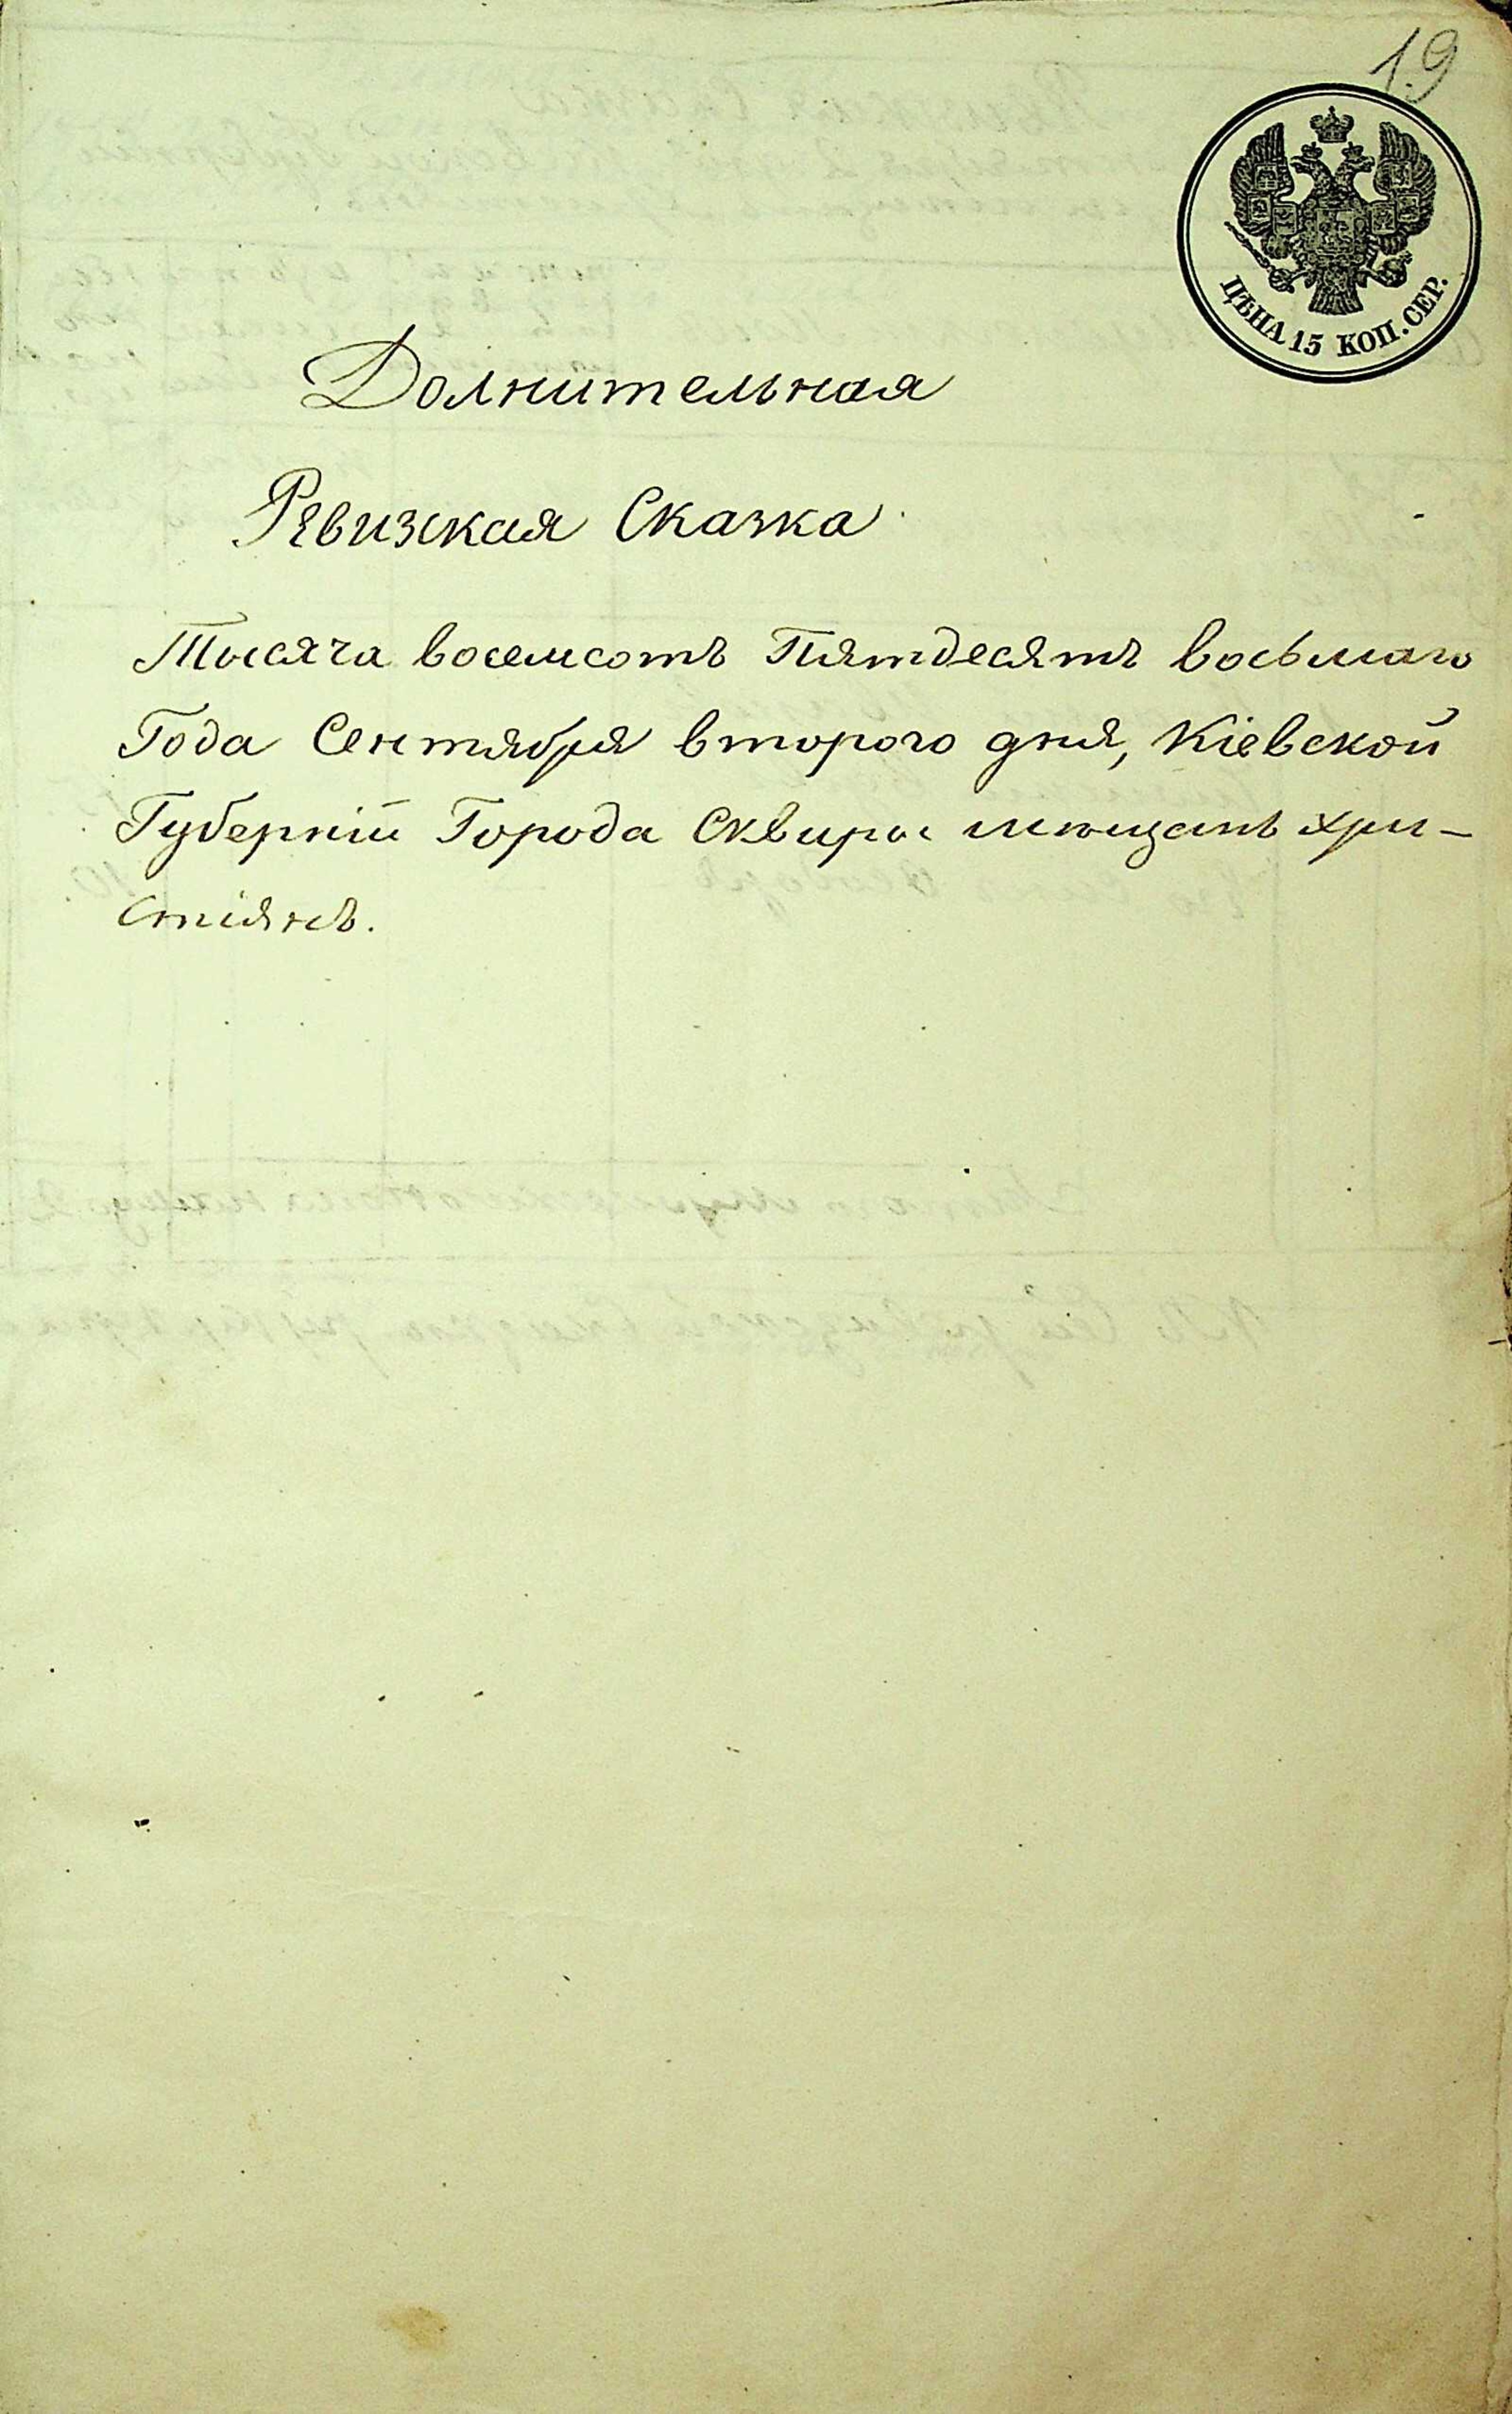 19
ЦѢНА 15 КОП. СЕР.
Долнительная
Ревизкая Сказка
Тысяча восемсотъ Пятдесятъ восьмаго
Года Сентября второго дня, Кіевской
Губерніи Города Сквиры мѣщанъ хри-
стіянъ.